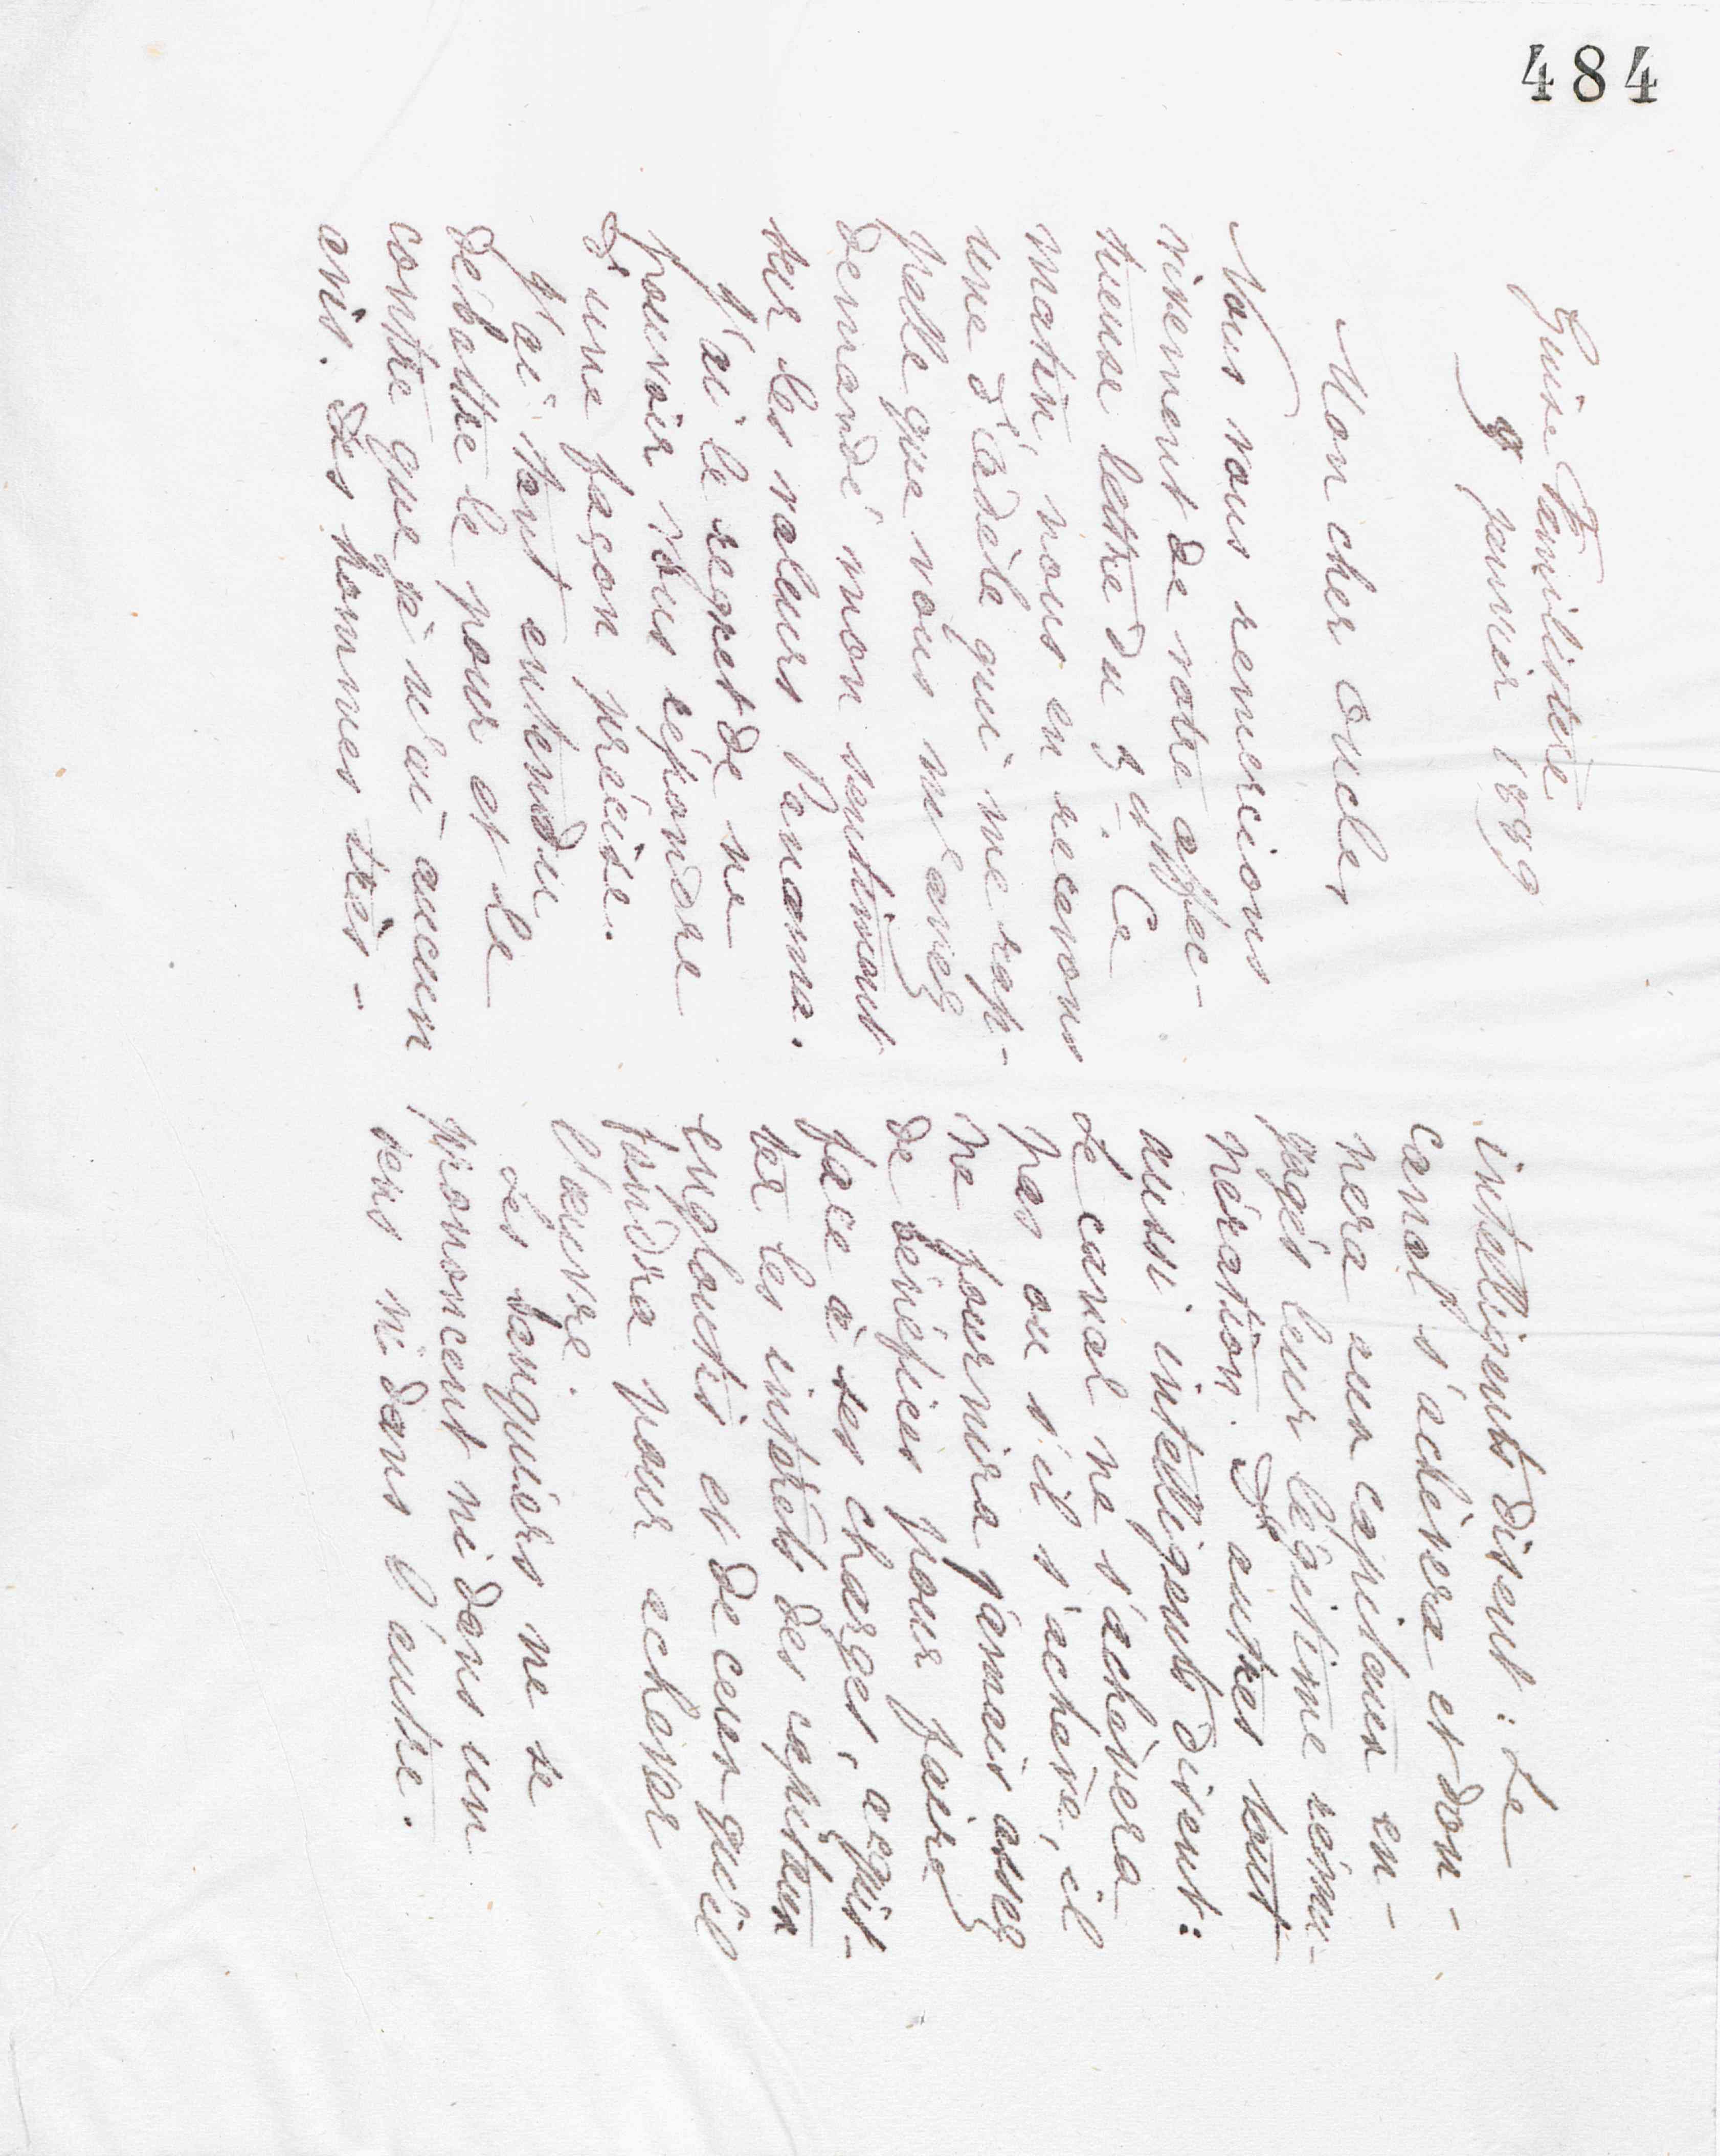 484
Guise Familistère
9 janvier 1889
Mon cher oncle,
Nous vous remercions
vivement de votre affec-
tueuse lettre du 3 et. Ce
matin, nous en recevons
une d'Adèle qui me rap-
pelle que vous m'avez
demandé mon sentiment
sur les valeurs Panama.
J'ai le regret de ne
pouvoir vous répondre
d'une façon précise.
J'ai tant entendu
débattre le pour et le
contre que je n'ai aucun
avis. Des hommes très-
intelligents disent : Le
canal s'achèvera et don-
nera aux capitaux en-
gagés leur légitime rému-
nération. D'autres tout
aussi intelligents disent :
Le canal ne s'achèvera
pas ou s'il s'achève, il
ne fournira jamais assez
de bénéfices pour faire
face à ses charges, acquit-
ter les intérêts des capitaux
engloutis et de ceux qu'il
faudra pour achever
l'œuvre.
Les banquiers ne se
prononcent ni dans un
sens ni dans l'autre.